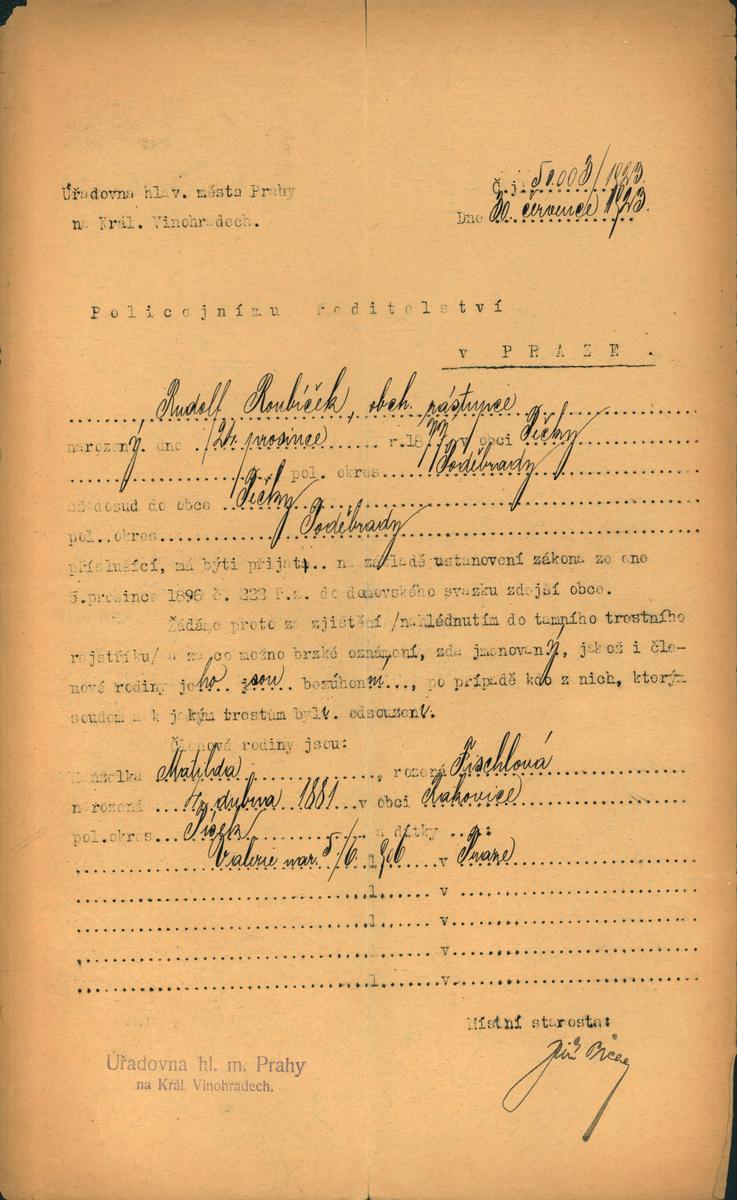 Úřadovna hlav. města Prahy
na Král. Vinohradech.
Č.j. 50.003/1923.
Dne 30. července 1923.
Policejnímu ředitelství
v PRAZE.
Rudolf Roubíček, obch. zástupce
narozený dne 24. prosince r. 1877 v obci Pičhy
pol. okres Poděbrady
až dosud do obce Pičhy
pol. okres Poděbrady
příslušící, má býti přijat. na základě ustanovení zákona ze dne
5. prosince 1896 č. 222 ř.z. do domovského svazku zdejší obce.
Žádáme proto za zjištění /nahlédnutím do tamního trestního
rejstříku/ a za co možno brzké oznámení, zda jmenovaný, jakož i čle-
nové rodiny jeho jsou bezúhonni..., po případě kdo z nich, kterým
soudem a k jakým trestům byli odsouzeni.
Členové rodiny jsou:
Manželka Matilda, rozená Fischlová
narozená dubna 1881 v obci Rakovice
pol. okres Písek a dítky :
Valerie nar. 5/6. 1906 v Praze
1 v
1 v
1 v
1 v
Místní starosta:
Úřadovna hl. m. Prahy
na Král. Vinohradech.